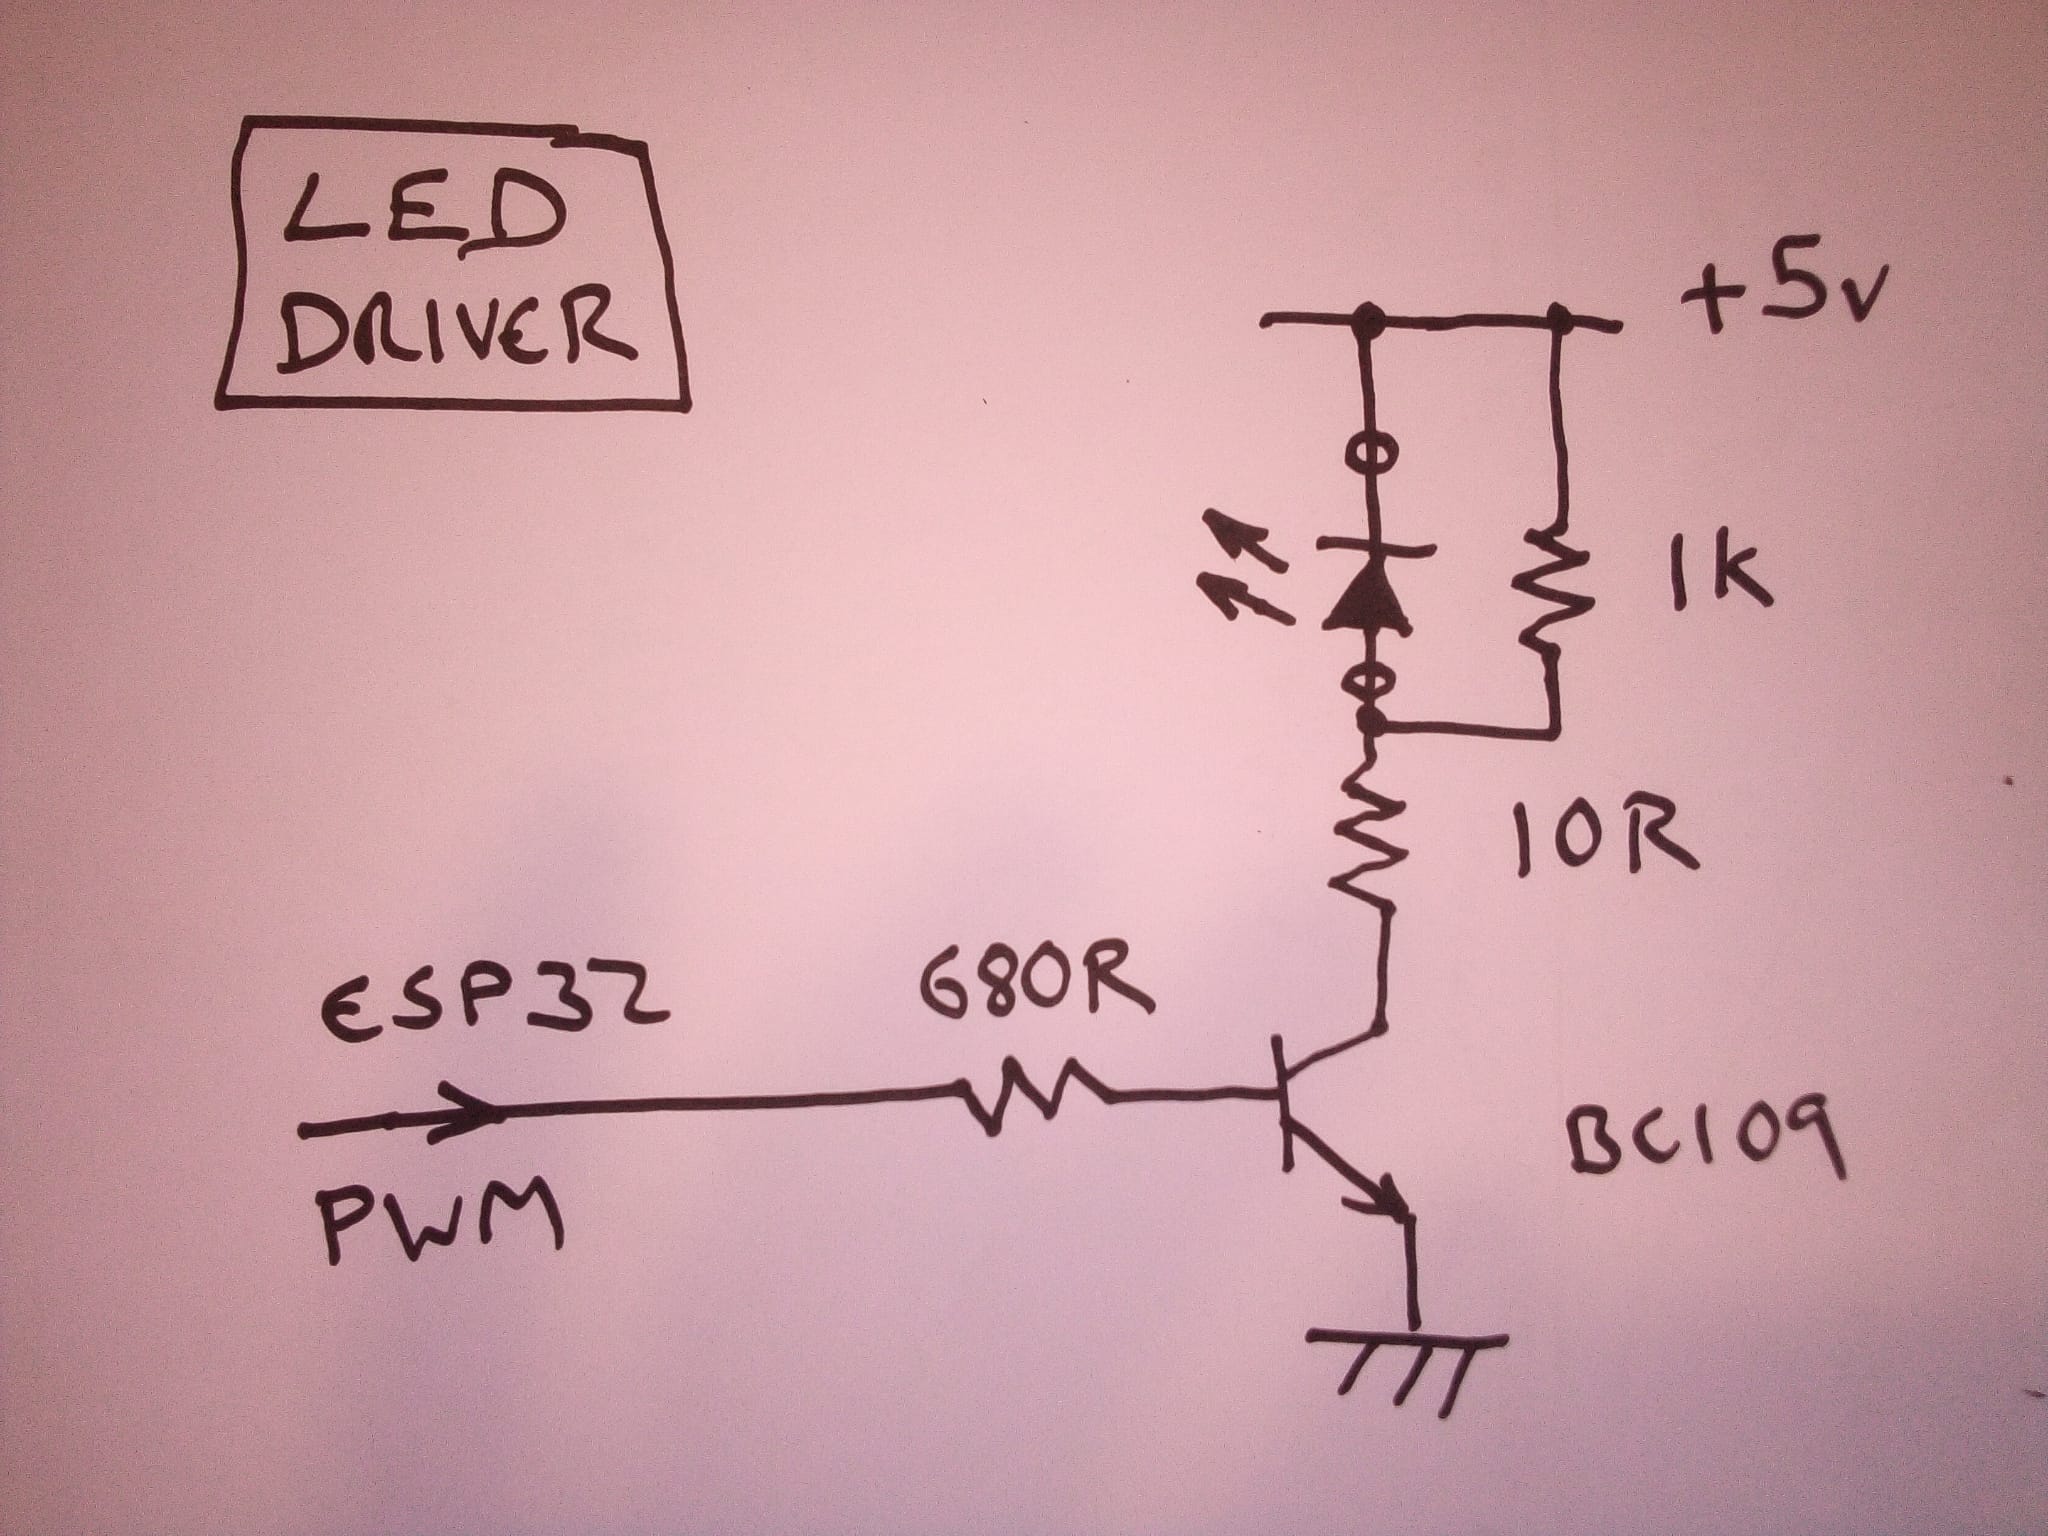 LED
DRIVER
+5v
1k
10R
ESP32
680R
PWM
BC109